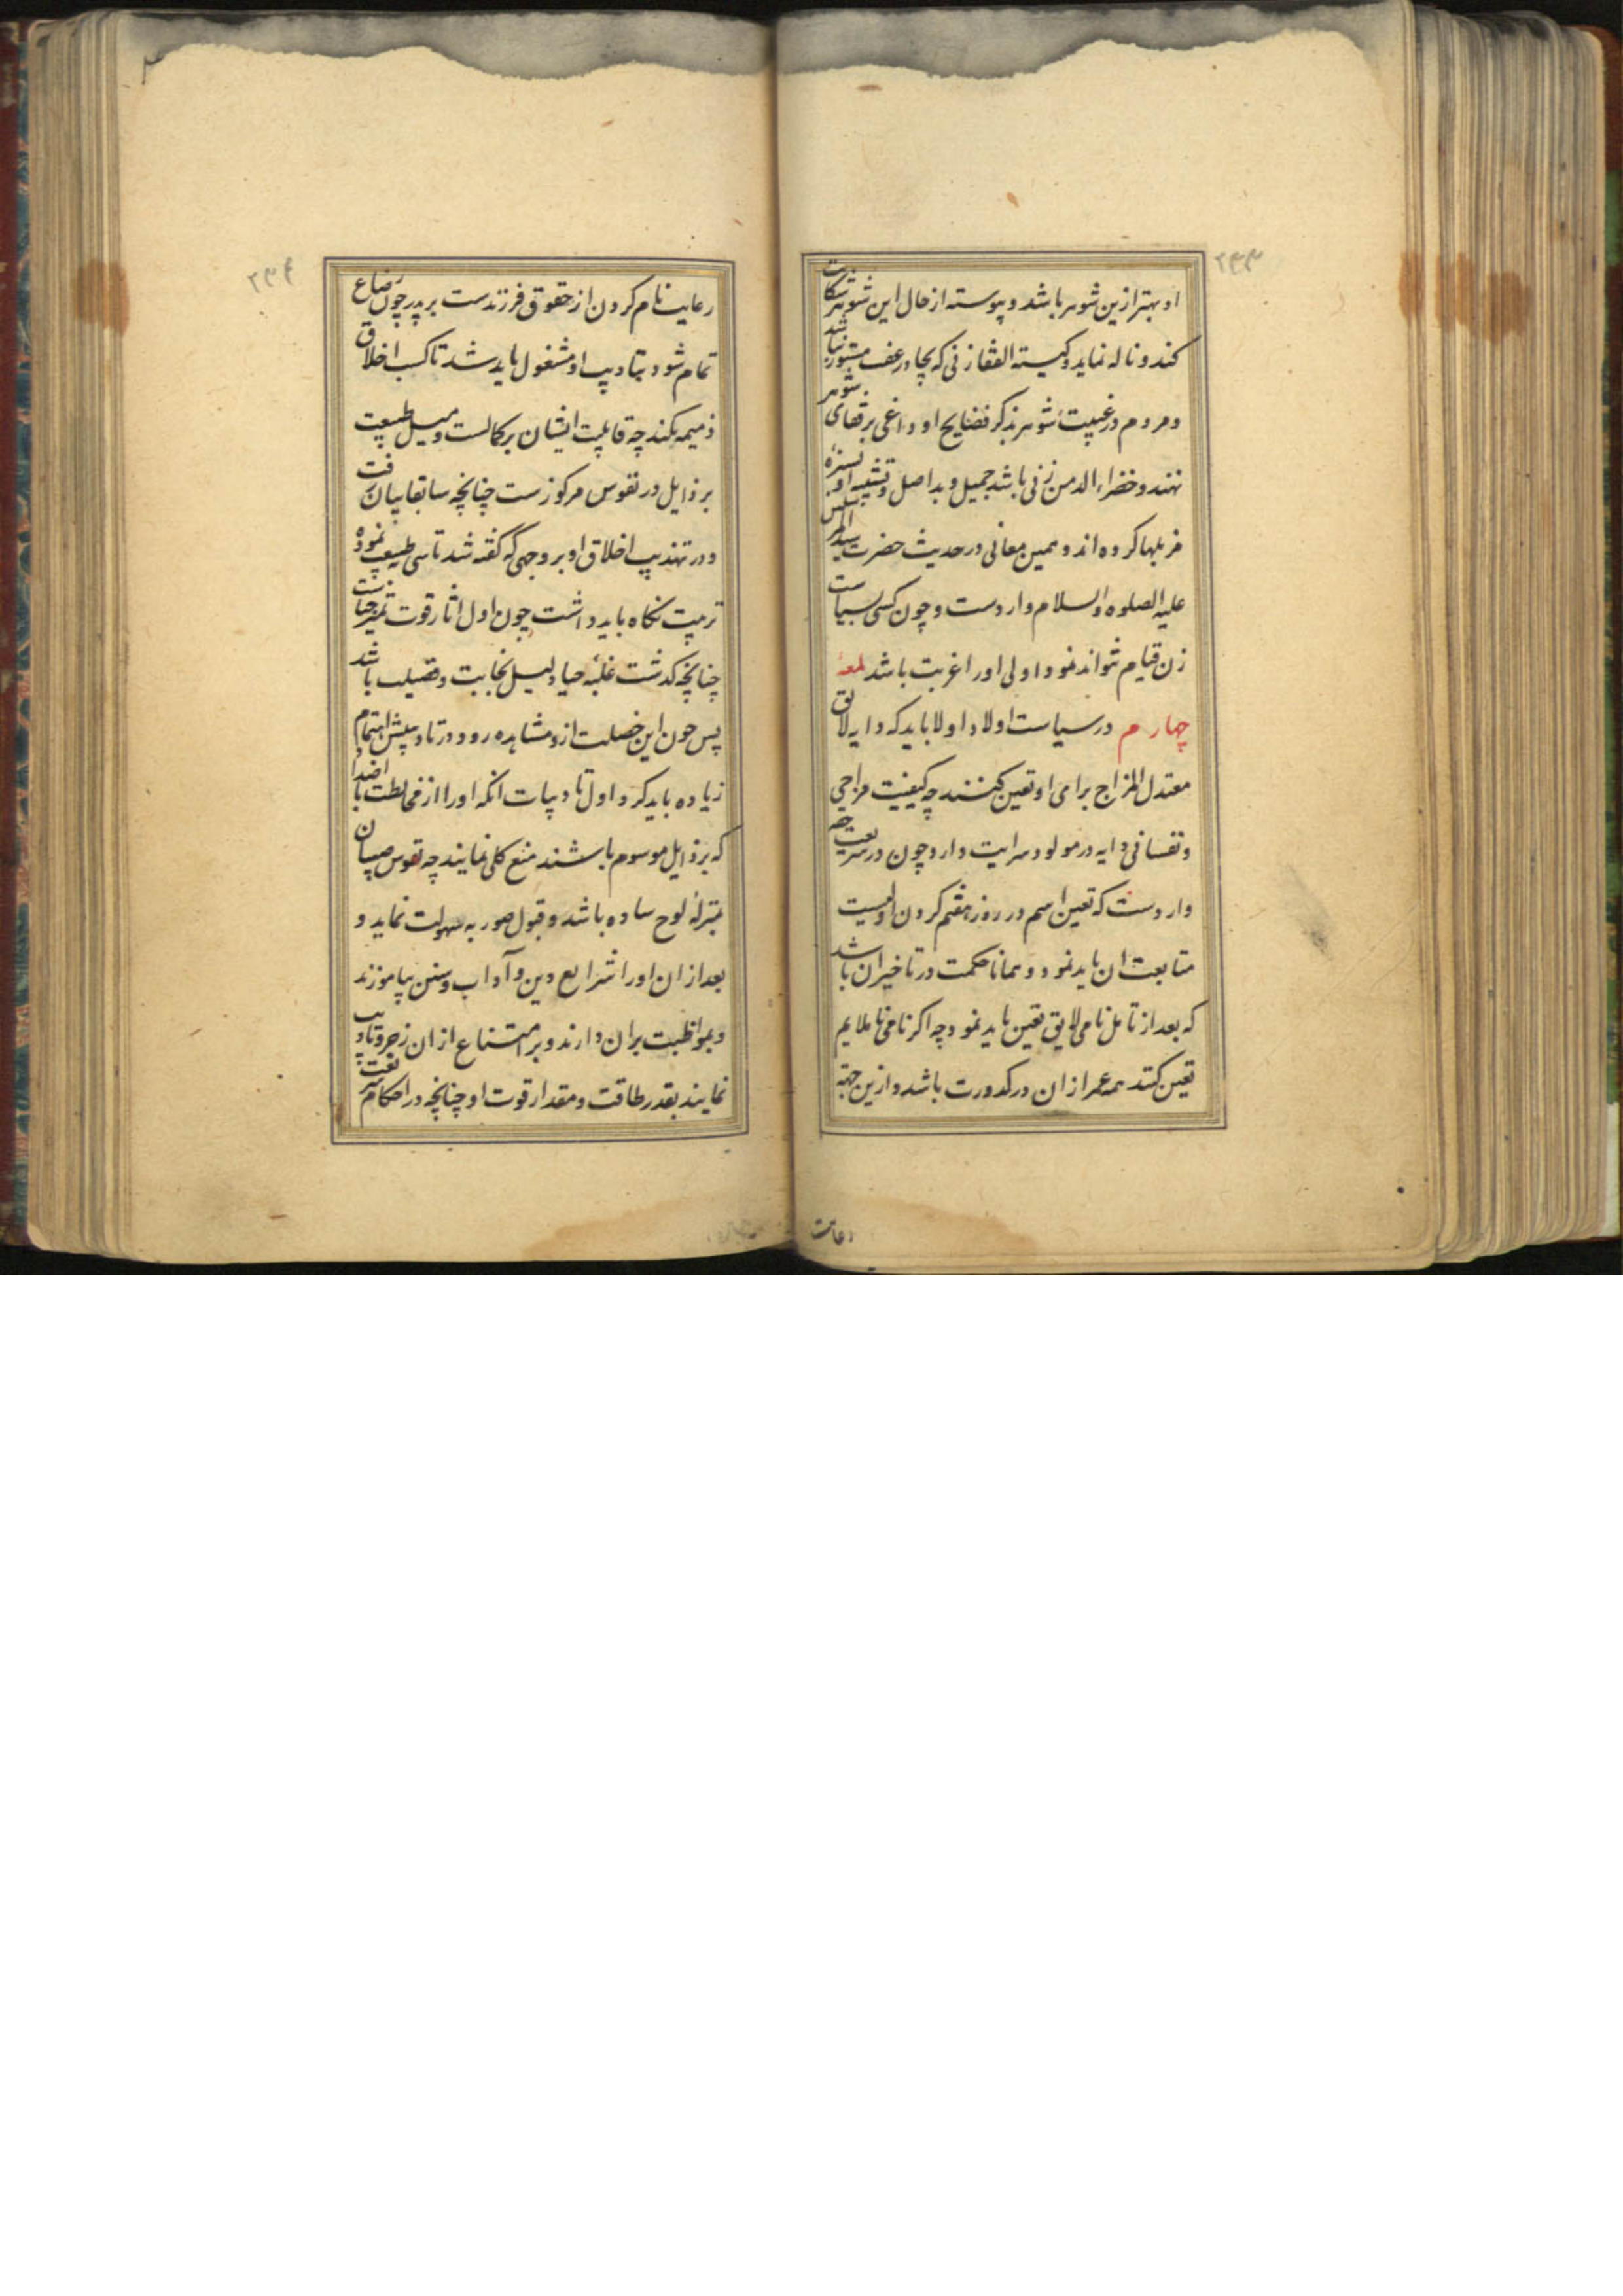 ۲۳۳
او بهتر ازین شوهر باشد و پیوسته از حال این شوهر شکایت
کند و ناله نماید و کیته القفا زنی که بچادر عفت مستور نباشد
و مردم در غیبت شوهر بذکر فضایح او داغی بر قفای شوهر
نهند و خضراء الدمن زنی باشد جمیل و بد اصل و تشبیه او بسبزه
مزبلها کرده اند و همین معانی در حدیث حضرت سید المرسلین
علیه الصلوه والسلام واردست و چون کسی بسیاست
زن قیام نتواند نمود اولی او را غربت باشد لمعهٔ
چهارم در سیاست اولاد اولا باید که دایه لایق
معتدل المزاج برای او تعین کنند چه کیفیت مزاجی
و نفسانی دایه در مولود سرایت دارد و چون در شریعت حقه
واردست که تعین اسم در روز هفتم کردن اولیست
متابعت ان باید نمود و همانا حکمت در تاخیر ان باشد
که بعد از تامل نامی لایق تعین باید نمود چه اکر نامی ناملایم
تعین کنند همه عمر از ان در کدورت باشد و ازین جهته
رعایت
۲۳۴
رعایت نام کردن از حقوق فرزندست بر پدر چون رضاع
تمام شود بتادیب او مشغول باید شد تا کسب اخلاق
ذمیمه نکند چه قابلیت ایشان بر کمالست و میل طبیعت
بر ذایل در نفوس مرکوزست چنانچه سابقا بیان رفت
و در تهذیب اخلاق او بر وجهی که کفته شد تاسی طبیعت نموده
ترتیب نکاه باید داشت چون اول اثار قوت تمیز حیاست
چنانچه کذشت غلبهٔ حیا دلیل نجابت و فضیلت باشد
پس چون این خصلت ازو مشاهده رود در تادیبش اهتمام
زیاده باید کرد و اول تادیبات انکه او را از مخالطت با اضداد
که برذایل موسوم باشند منع کلی نمایند چه نفوس صبیان
بمنزلهٔ لوح ساده باشد و قبول صور به سهولت نماید و
بعد از ان او را شرایع دین و آداب و سنن بیاموزند
و بمواظبت بران دارند و بر امتناع از ان زجر و تادیب
نمایند بقدر طاقت و مقدار قوت او چنانچه در احکام شریعت